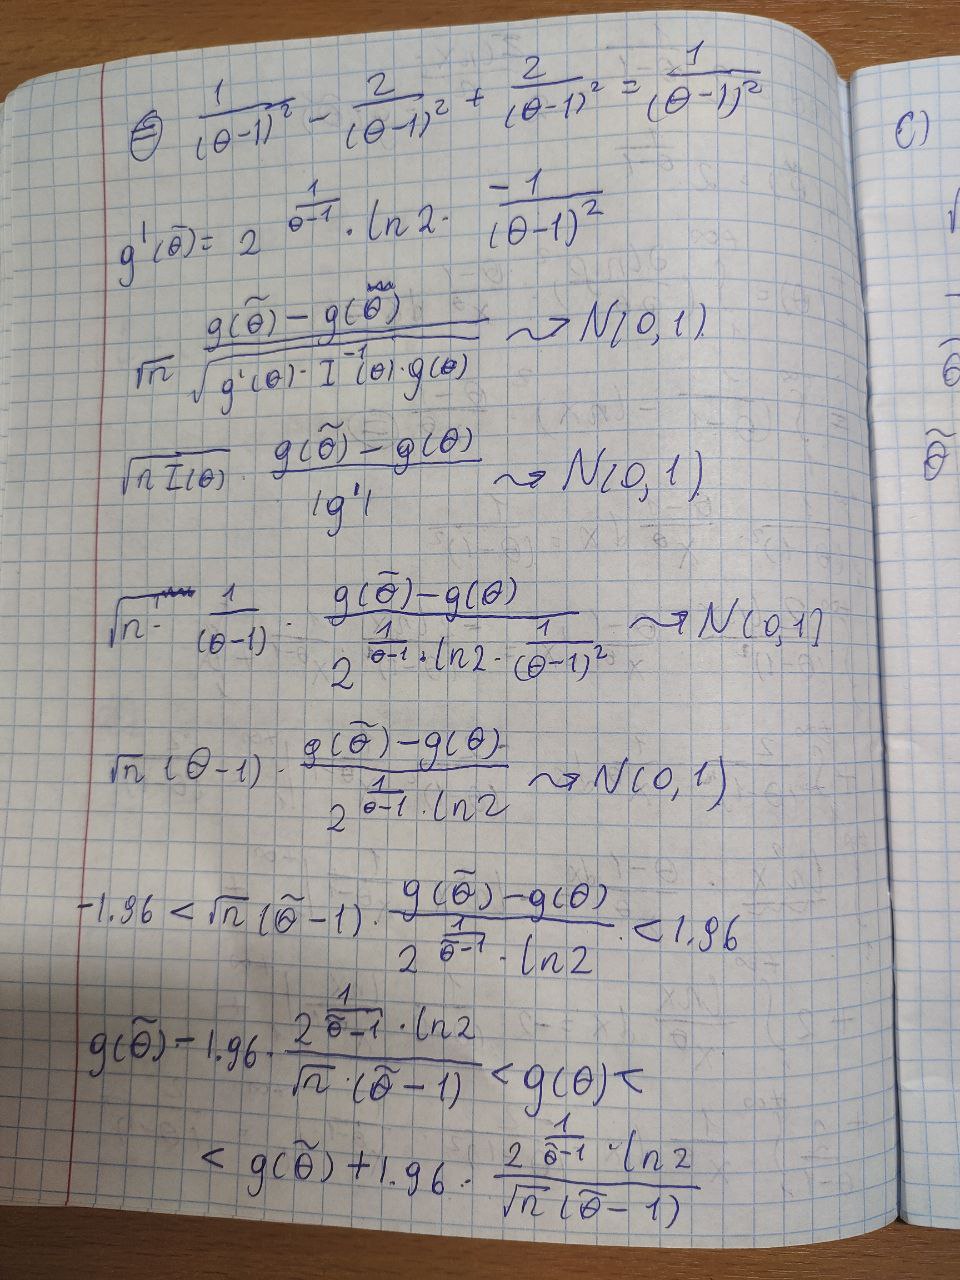 ⊜ 1/(θ-1)² - 2/(θ-1)² + 2/(θ-1)² = 1/(θ-1)²
g'(θ̃) = 2^(1/(θ-1)) · ln2 · -1/(θ-1)²
√n (g(θ̃) - g(θ))/√(g'(θ) · I⁻¹(θ) · g(θ)) ⇝ N(0,1)
√(nI(θ)) · (g(θ̃) - g(θ))/|g'| ⇝ N(0,1)
√n · 1/(θ-1) · (g(θ̃) - g(θ))/(2^(1/(θ-1)) · ln2 · 1/(θ-1)²) ⇝ N(0,1)
√n (θ-1) · (g(θ̃) - g(θ))/(2^(1/(θ-1)) · ln2) ⇝ N(0,1)
-1.96 < √n (θ̃-1) · (g(θ̃) - g(θ))/(2^(1/(θ̃-1)) · ln2) < 1.96
g(θ̃) - 1.96 · (2^(1/(θ̃-1)) · ln2)/(√n · (θ̃-1)) < g(θ) <
< g(θ̃) + 1.96 · (2^(1/(θ̃-1)) · ln2)/(√n (θ̃-1))
c)
θ̃
θ̃